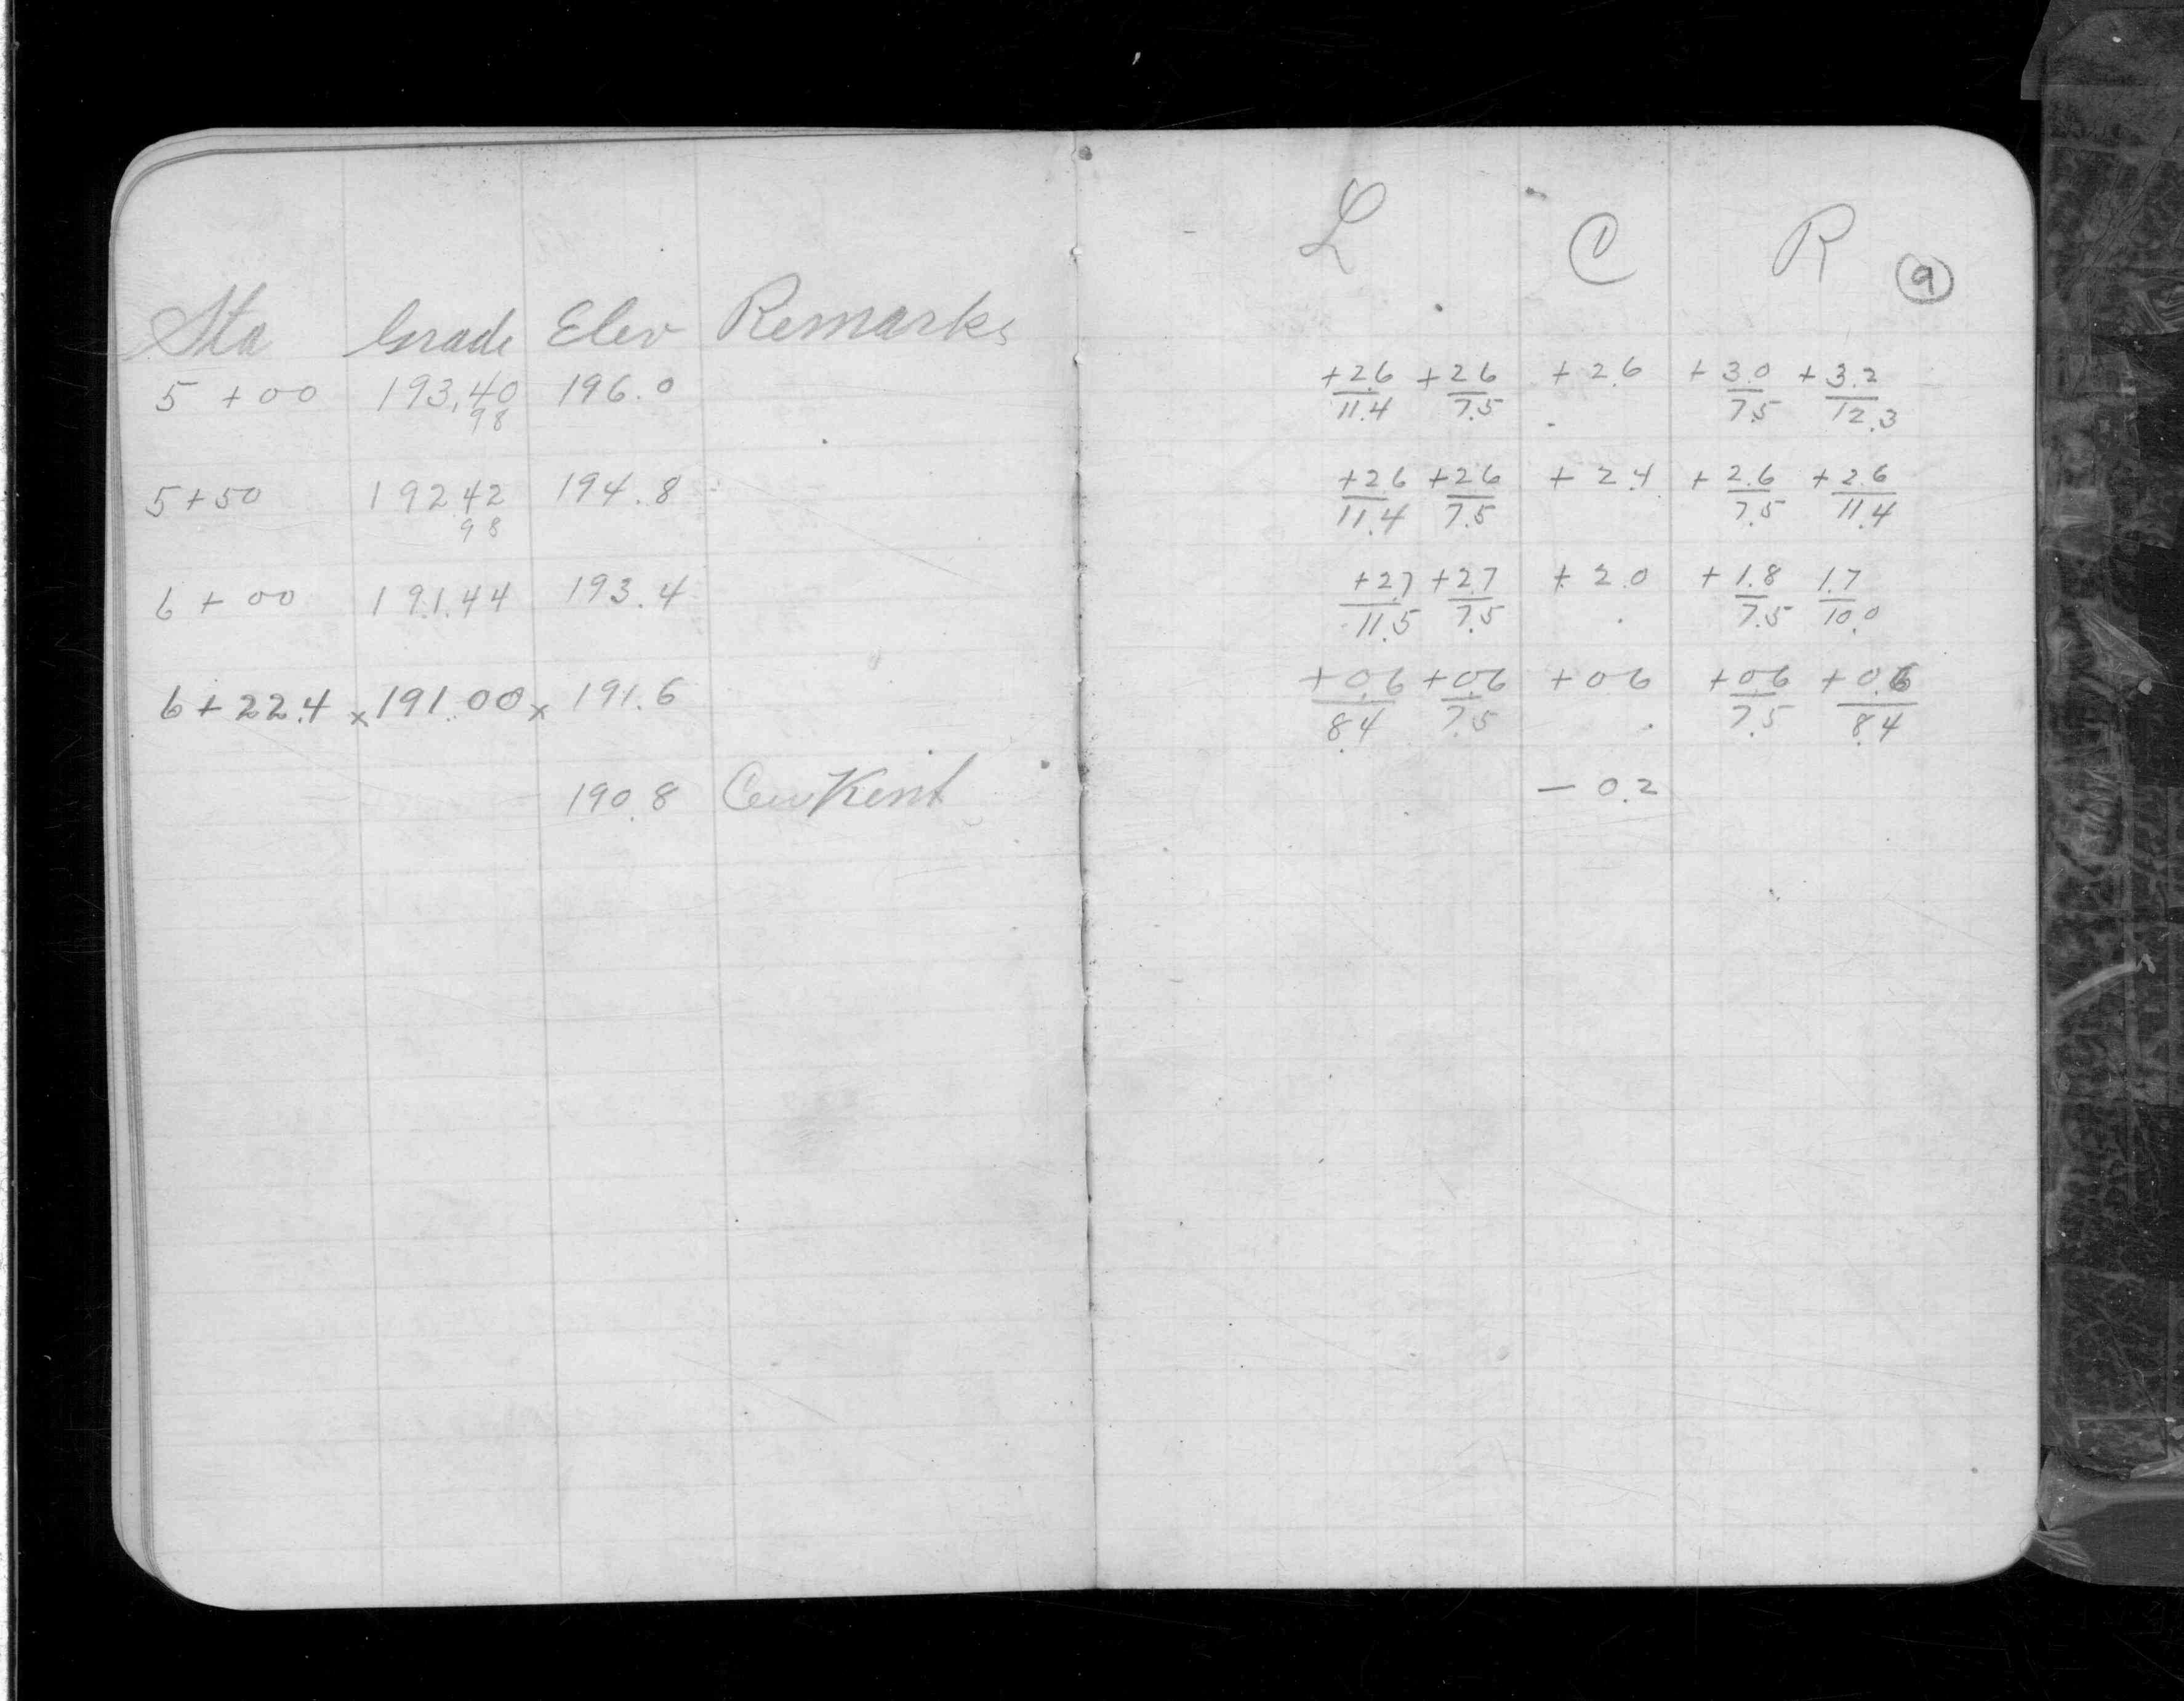 Sta Grade Elev Remarks
5 + 00 193.40 196.0
98
5+50 192.42 194.8
98
6 + 00 191.44 193.4
6+22.4 x 191.00 x 191.6
190.8 Kent
L C R 9
+2.6 +2.6 +2.6 +3.0 +3.2
11.4 7.5 7.5 12.3
+2.6 +2.6 +2.4 +2.6 +2.6
11.4 7.5 7.5 11.4
+2.7 +2.7 +2.0 +1.8 1.7
11.5 7.5 7.5 10.0
+0.6 +0.6 +0.6 +0.6 +0.6
8.4 7.5 7.5 8.4
- 0.2